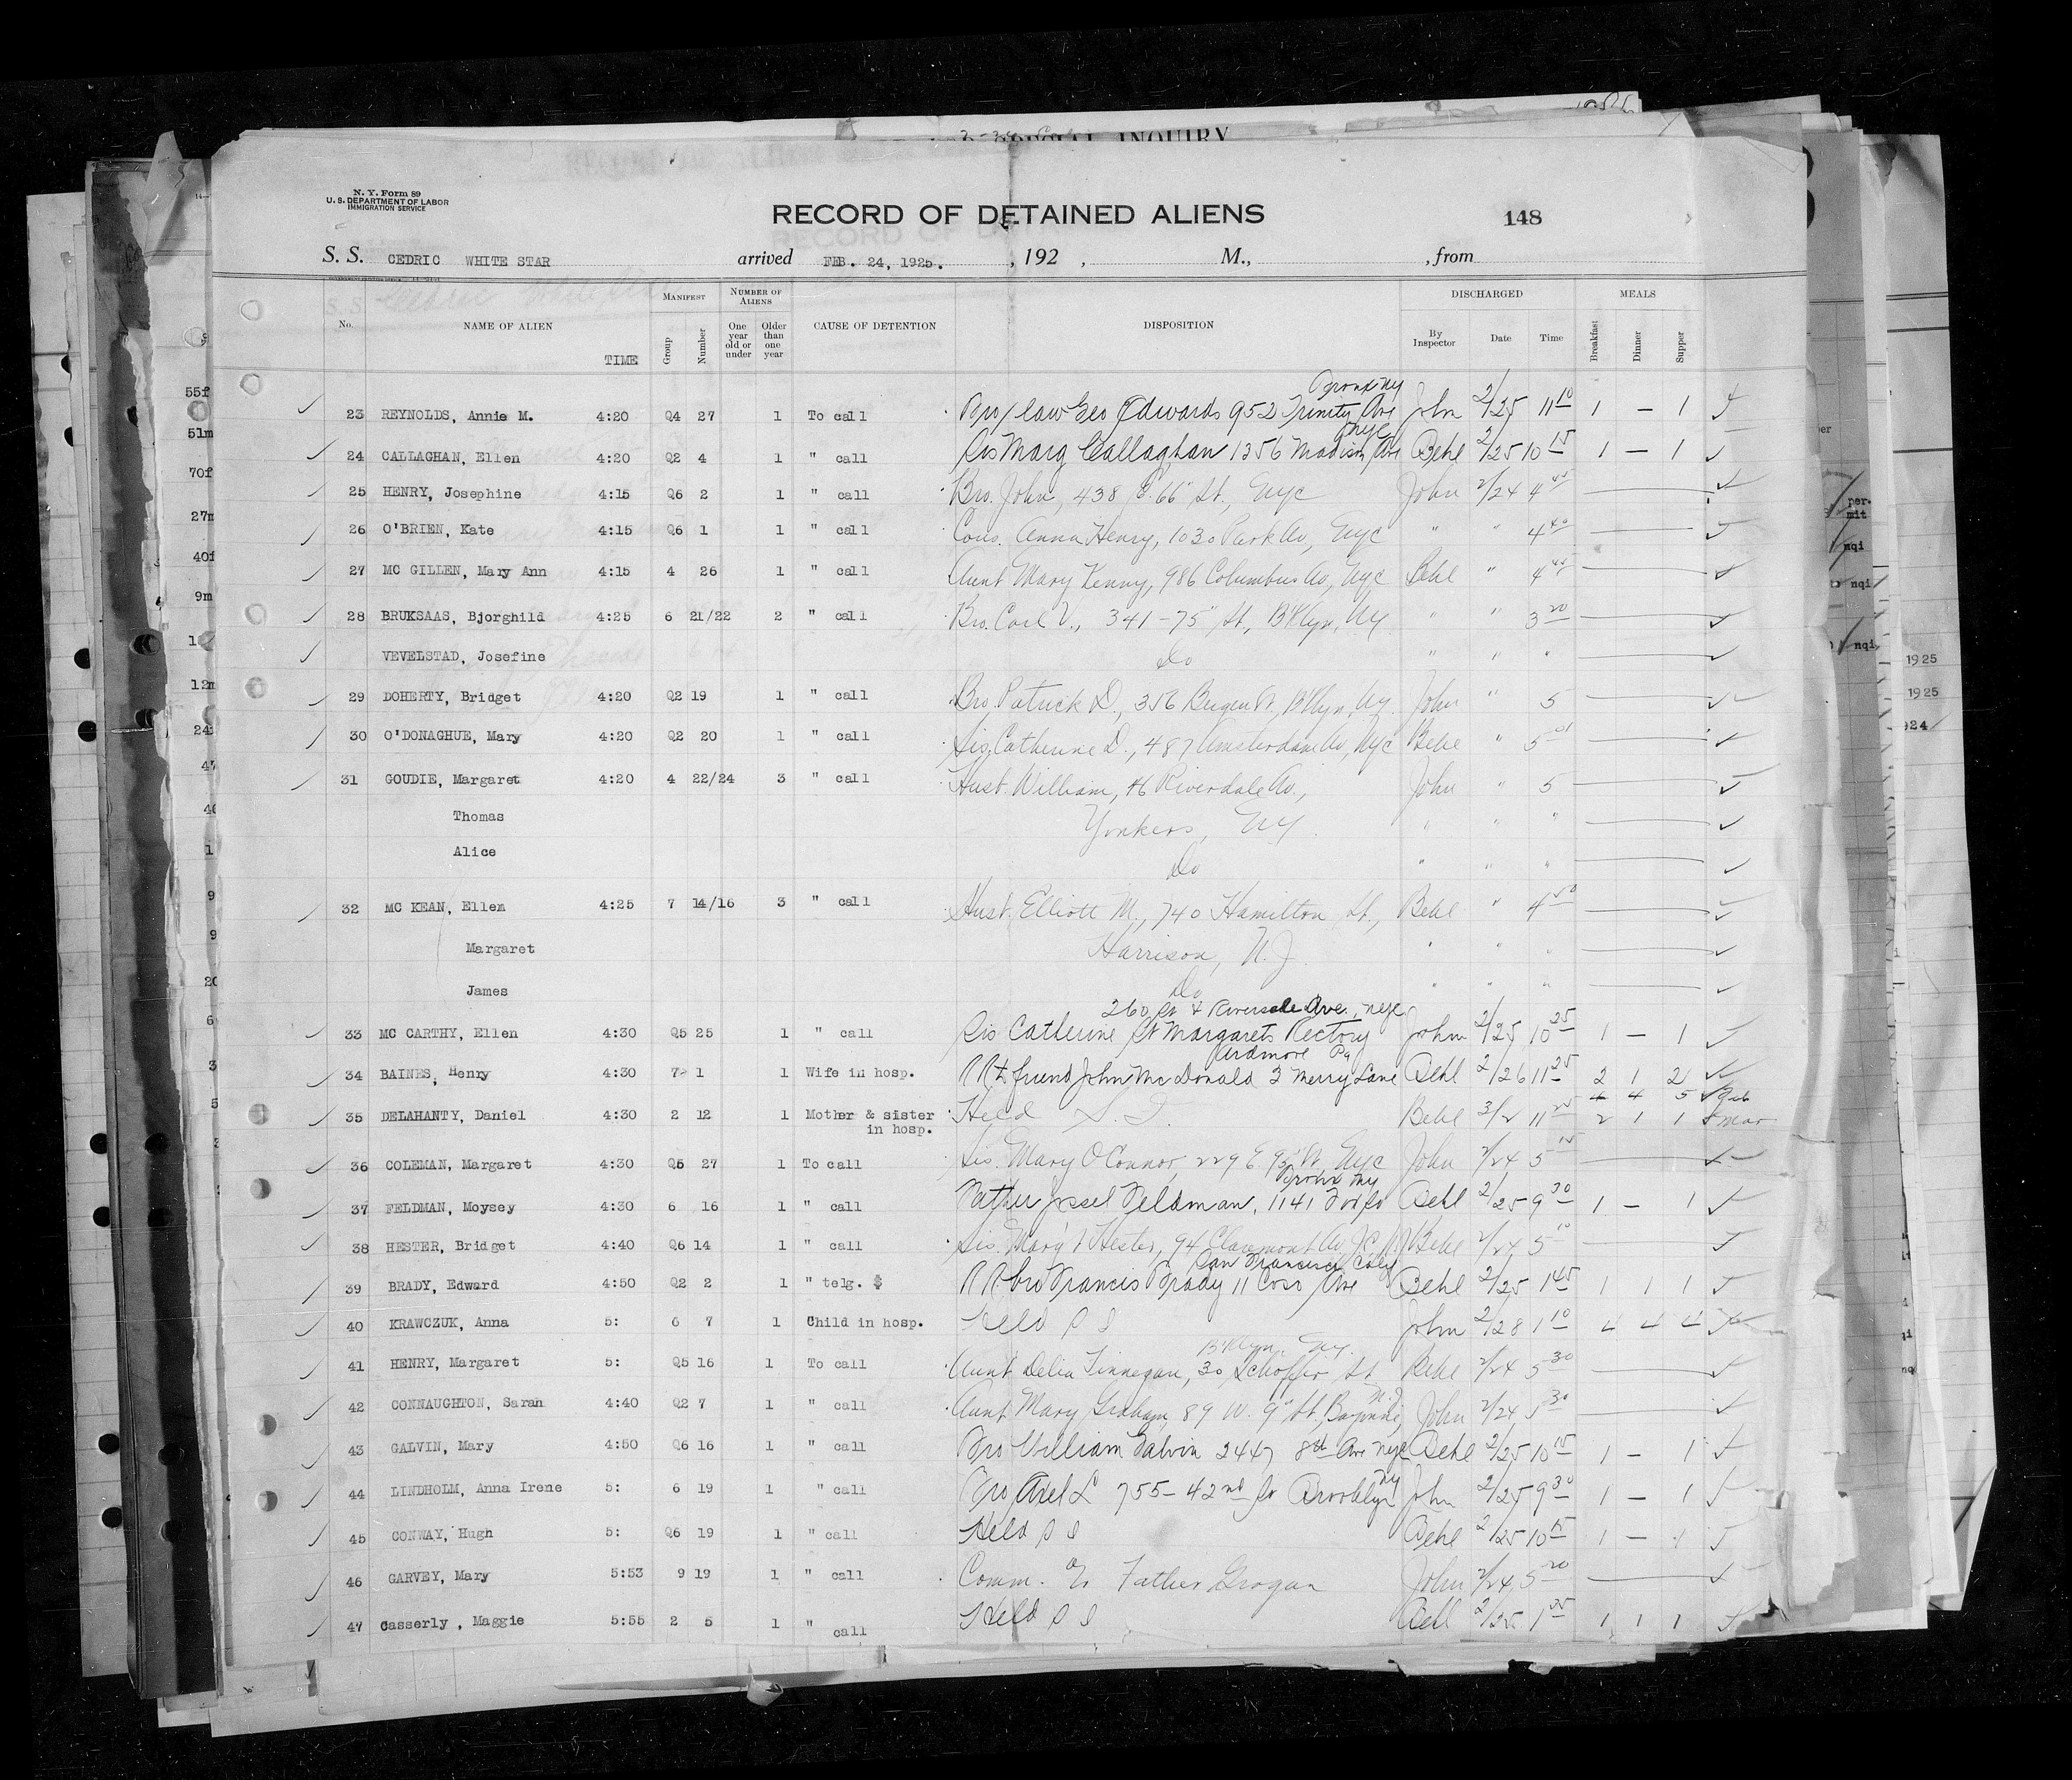 SPECIAL INQUIRY
N. Y. Form 89
U. S. DEPARTMENT OF LABOR
IMMIGRATION SERVICE
RECORD OF DETAINED ALIENS 148
S. S. CEDRIC WHITE STAR arrived FEB. 24, 1925. , 192 , M., , from
No. NAME OF ALIEN TIME MANIFEST Group Number NUMBER OF ALIENS One year old or under Older than one year CAUSE OF DETENTION DISPOSITION DISCHARGED By Inspector Date Time MEALS Breakfast Dinner Supper
Bronx NY
23 REYNOLDS, Annie M. 4:20 Q4 27 1 To call Bro/law Geo Edwards 952 Trinity Ave John 2/25 11 10 1 — 1
NYC
24 CALLAGHAN, Ellen 4:20 Q2 4 1 " call Sis Marg Callaghan 1356 Madison Ave Behl 2/25 10 15 1 — 1
25 HENRY, Josephine 4:15 Q6 2 1 " call Bro. John, 438 E. 66" St., NYC John 2/24 4 45
26 O'BRIEN, Kate 4:15 Q6 1 1 " call Cous. Anna Henry, 1030 Park Av, NYC " " 4 40
27 MC GILLEN, Mary Ann 4:15 4 26 1 " call Aunt Mary Kenny, 986 Columbus Av, NYC Behl " 4 45
28 BRUKSAAS, Bjorghild 4:25 6 21/22 2 " call Bro. Carl V., 341-75" St., B'klyn, NY " " 3 20
VEVELSTAD, Josefine Do " " "
29 DOHERTY, Bridget 4:20 Q2 19 1 " call Bro. Patrick D., 356 Bergen St, B'klyn, NY. John " 5
30 O'DONAGHUE, Mary 4:20 Q2 20 1 " call Sis. Catherine D., 487 Amsterdam Av, NYC Behl " 5
31 GOUDIE, Margaret 4:20 4 22/24 3 " call Husb. William, 46 Riverdale Av., John " 5
Thomas Yonkers, NY. " " "
Alice Do " " "
32 MC KEAN, Ellen 4:25 7 14/16 3 " call Husb. Elliott M., 740 Hamilton St., Behl " 4 50
Margaret Harrison, N.J. " " "
James Do " " "
260 St & Riversdale Ave., NYC
33 MC CARTHY, Ellen 4:30 Q5 25 1 " call Sis Catherine St Margarets Rectory John 2/25 10 25 1 — 1
Ardmore Pa
34 BAINES, Henry 4:30 7 1 1 Wife in hosp. friend John McDonald 3 Merry Lane Behl 2/26 11 25 2 1 2
4 4 5 Feb
35 DELAHANTY, Daniel 4:30 2 12 1 Mother & sister Held S. I. Behl 3/2 11 25 2 1 1 Mar
in hosp.
36 COLEMAN, Margaret 4:30 Q5 27 1 To call Sis. Mary O'Connor, 229 E. 95" St, NYC John 2/24 5 15
Bronx NY
37 FELDMAN, Moysey 4:30 6 16 1 " call Father Jossel Feldman, 1141 Behl 2/25 9 30 1 — 1
38 HESTER, Bridget 4:40 Q6 14 1 " call Sis. Marg't Hester, 94 Claremont Av, JC NJ Behl 2/24 5 10
San Francisco Calif
39 BRADY, Edward 4:50 Q2 2 1 " telg. $ R R bro Francis Brady 11 Coso Ave Behl 2/25 1 45 1 1 1
40 KRAWCZUK, Anna 5: 6 7 1 Child in hosp. Held S I John 2/28 1 10 4 4 4
B'klyn, NY.
41 HENRY, Margaret 5: Q5 16 1 To call Aunt Delia Finnegan, 30 St. Behl 2/24 5 30
N.J.
42 CONNAUGHTON, Sarah 4:40 Q2 7 1 " call Aunt Mary Graham, 89 W. 9" St., Bayonne, John 2/24 5 30
43 GALVIN, Mary 4:50 Q6 16 1 " call Bro William Galvin 2447 8th Ave NYC Behl 2/25 10 15 1 — 1
NY
44 LINDHOLM, Anna Irene 5: 6 19 1 " call Bro Axel L 755-42nd St Brooklyn John 2/25 9 30 1 — 1
45 CONWAY, Hugh 5: Q6 19 1 " call Held S I Behl 2/25 10 15 1 — 1
46 GARVEY, Mary 5:53 9 19 1 " call Comm. Father Grogan John 2/24 5 20
47 Casserly, Maggie 5:55 2 5 1 " call Held S I Behl 2/25 1 1 1 1